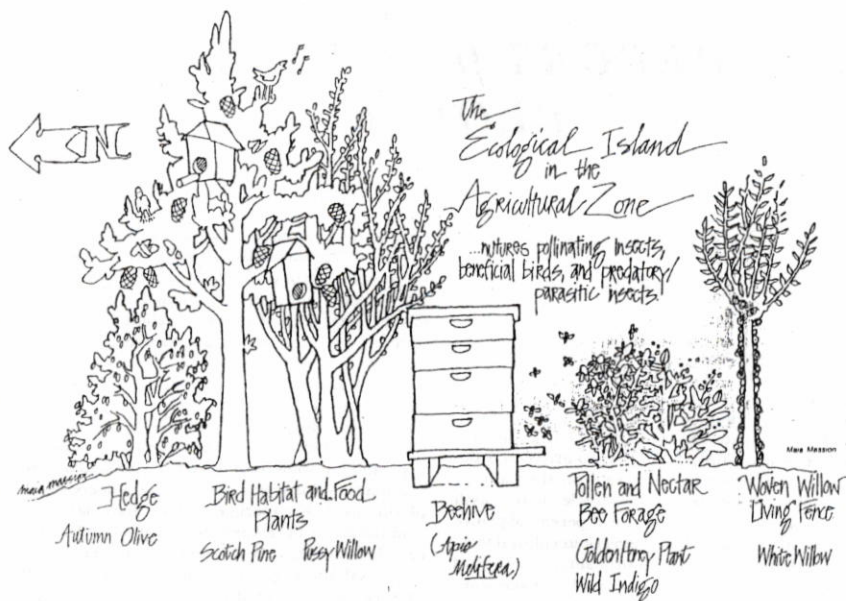 N
The
Ecological Island
in the
Agricultural Zone
...nutures pollinating insects,
beneficial birds, and predatory/
parasitic insects.
Maia Massion
maia massion
Hedge
Autumn Olive
Bird Habitat and Food
Plants
Scotch Pine Pussy Willow
Beehive
(Apis
Melifera)
Pollen and Nectar
Bee Forage
Golden Honey Plant
Wild Indigo
Woven Willow
Living Fence
White Willow